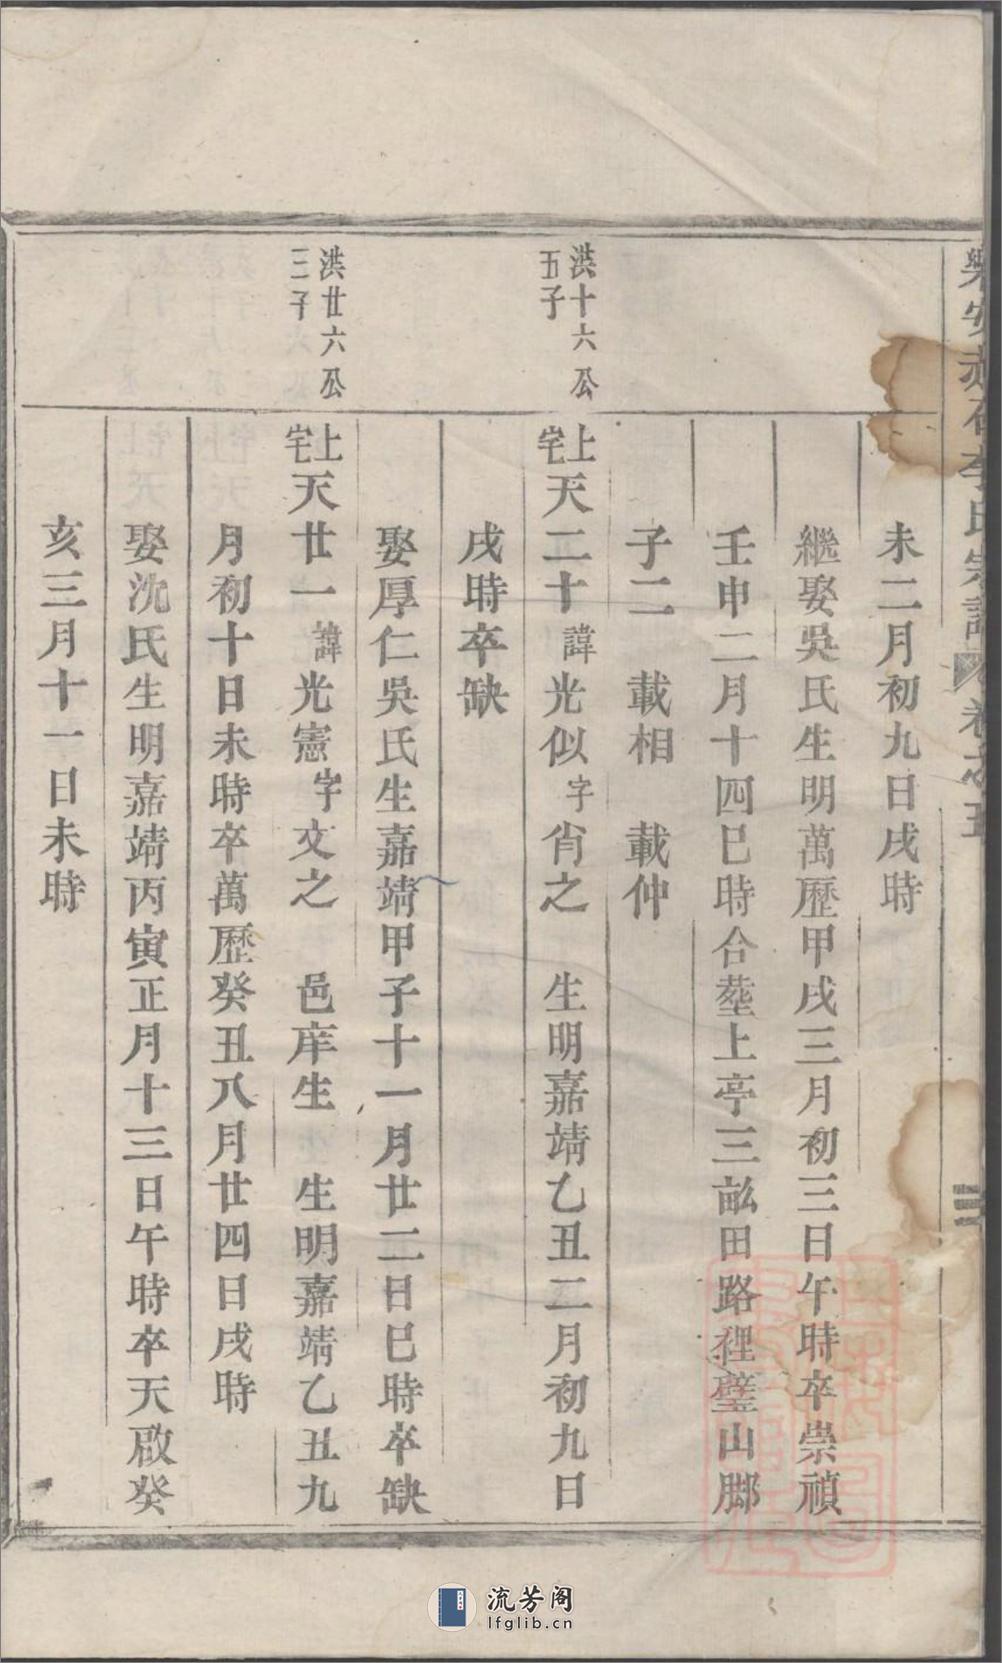 未二月初九日戌時
繼娶吳氏生明萬歷甲戌三月初三日午時卒崇禎
壬申二月十四巳時合塟上亭三畝田路裡璧山脚
子二 載相 載仲
洪十六公
五子
上宅天二十諱光似字肖之 生明嘉靖乙丑二月初九日
戌時卒缺
娶厚仁吳氏生嘉靖甲子十一月廿二日巳時卒缺
洪廿六公
三子
上宅天廿一諱光憲字文之 邑庠生 生明嘉靖乙丑九
月初十日未時卒萬歷癸丑八月廿四日戌時
娶沈氏生明嘉靖丙寅正月十三日午時卒天啟癸
亥三月十一日未時
流芳阁
lfglib.cn